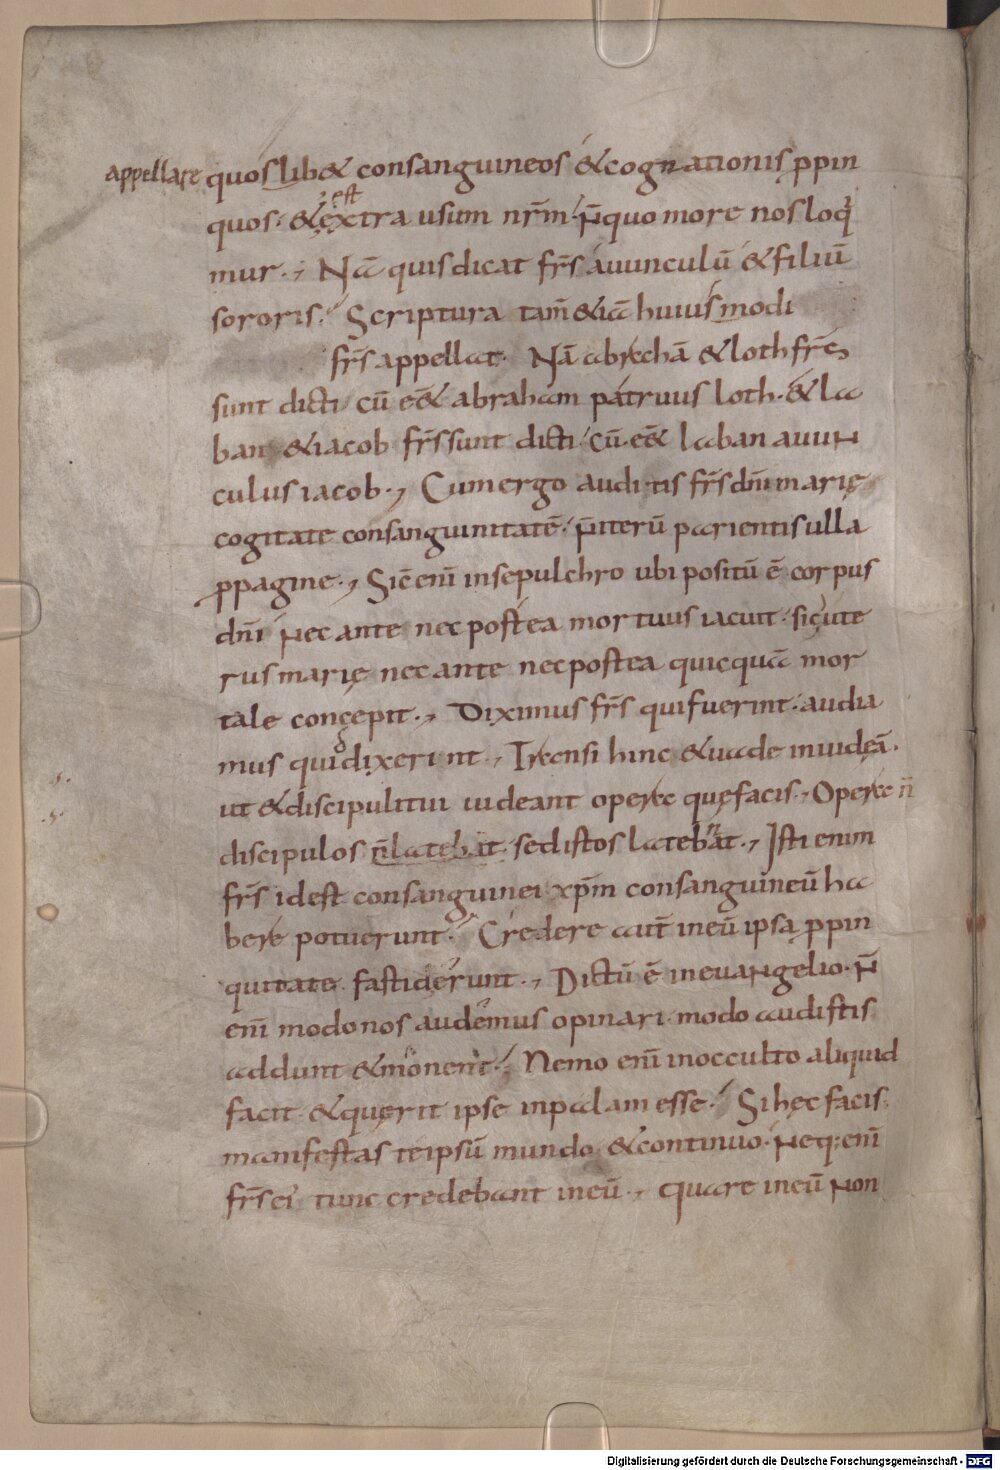 appellare quoslib& consanguineos &cognationis ppin
est
quos· &extra usum nrm· n̄quo more nosloq
mur·, Nā quisdicat frs̄ auunculū &filiū
sororis· Scriptura tam̄ &iā huiusmodi
frs̄ appellat· Nā abrahā &loth frēs
sunt dicti cū eē& abraham patruus loth· &la
ban &iacob frs̄ sunt dicti cū eē& laban auun
culus iacob·, Cum ergo auditis frs̄ dn̄i marię
cogitate consanguinitatē· n̄iterū parientis ulla
ppagine·, Sic̄ enī insepulchro ubi positū ē corpus
dn̄i nec ante nec postea mortuus iacuit· sic ute
rus marię nec ante nec postea quicquā mor
tale concepit·, Diximus frs̄ qui fuerint· audia
mus quid dixerint·, Transi hinc &uade iniudeā·
ut &discipuli tui uideant opera quęfacis·, Opera n̄
discipulos n̄latebat· sedistos latebant·, Isti enim
frs̄ idest consanguinei xpm̄ consanguineū ha
bere potuerunt· Credere aut̄ ineū ipsa ppin
quitate fastidierunt·, Dictū ē ineuangelio· N̄
enī modo nos audemus opinari modo audistis
addunt &monent· Nemo enī inocculto aliquid
facit &querit ipse inpalam esse· Si hęc facis
manifesta teipsū mundo &continuo· Neq; enī
frs̄ ei tunc credebant ineū·, Quare ineū non
Digitalisierung gefördert durch die Deutsche Forschungsgemeinschaft - DFG